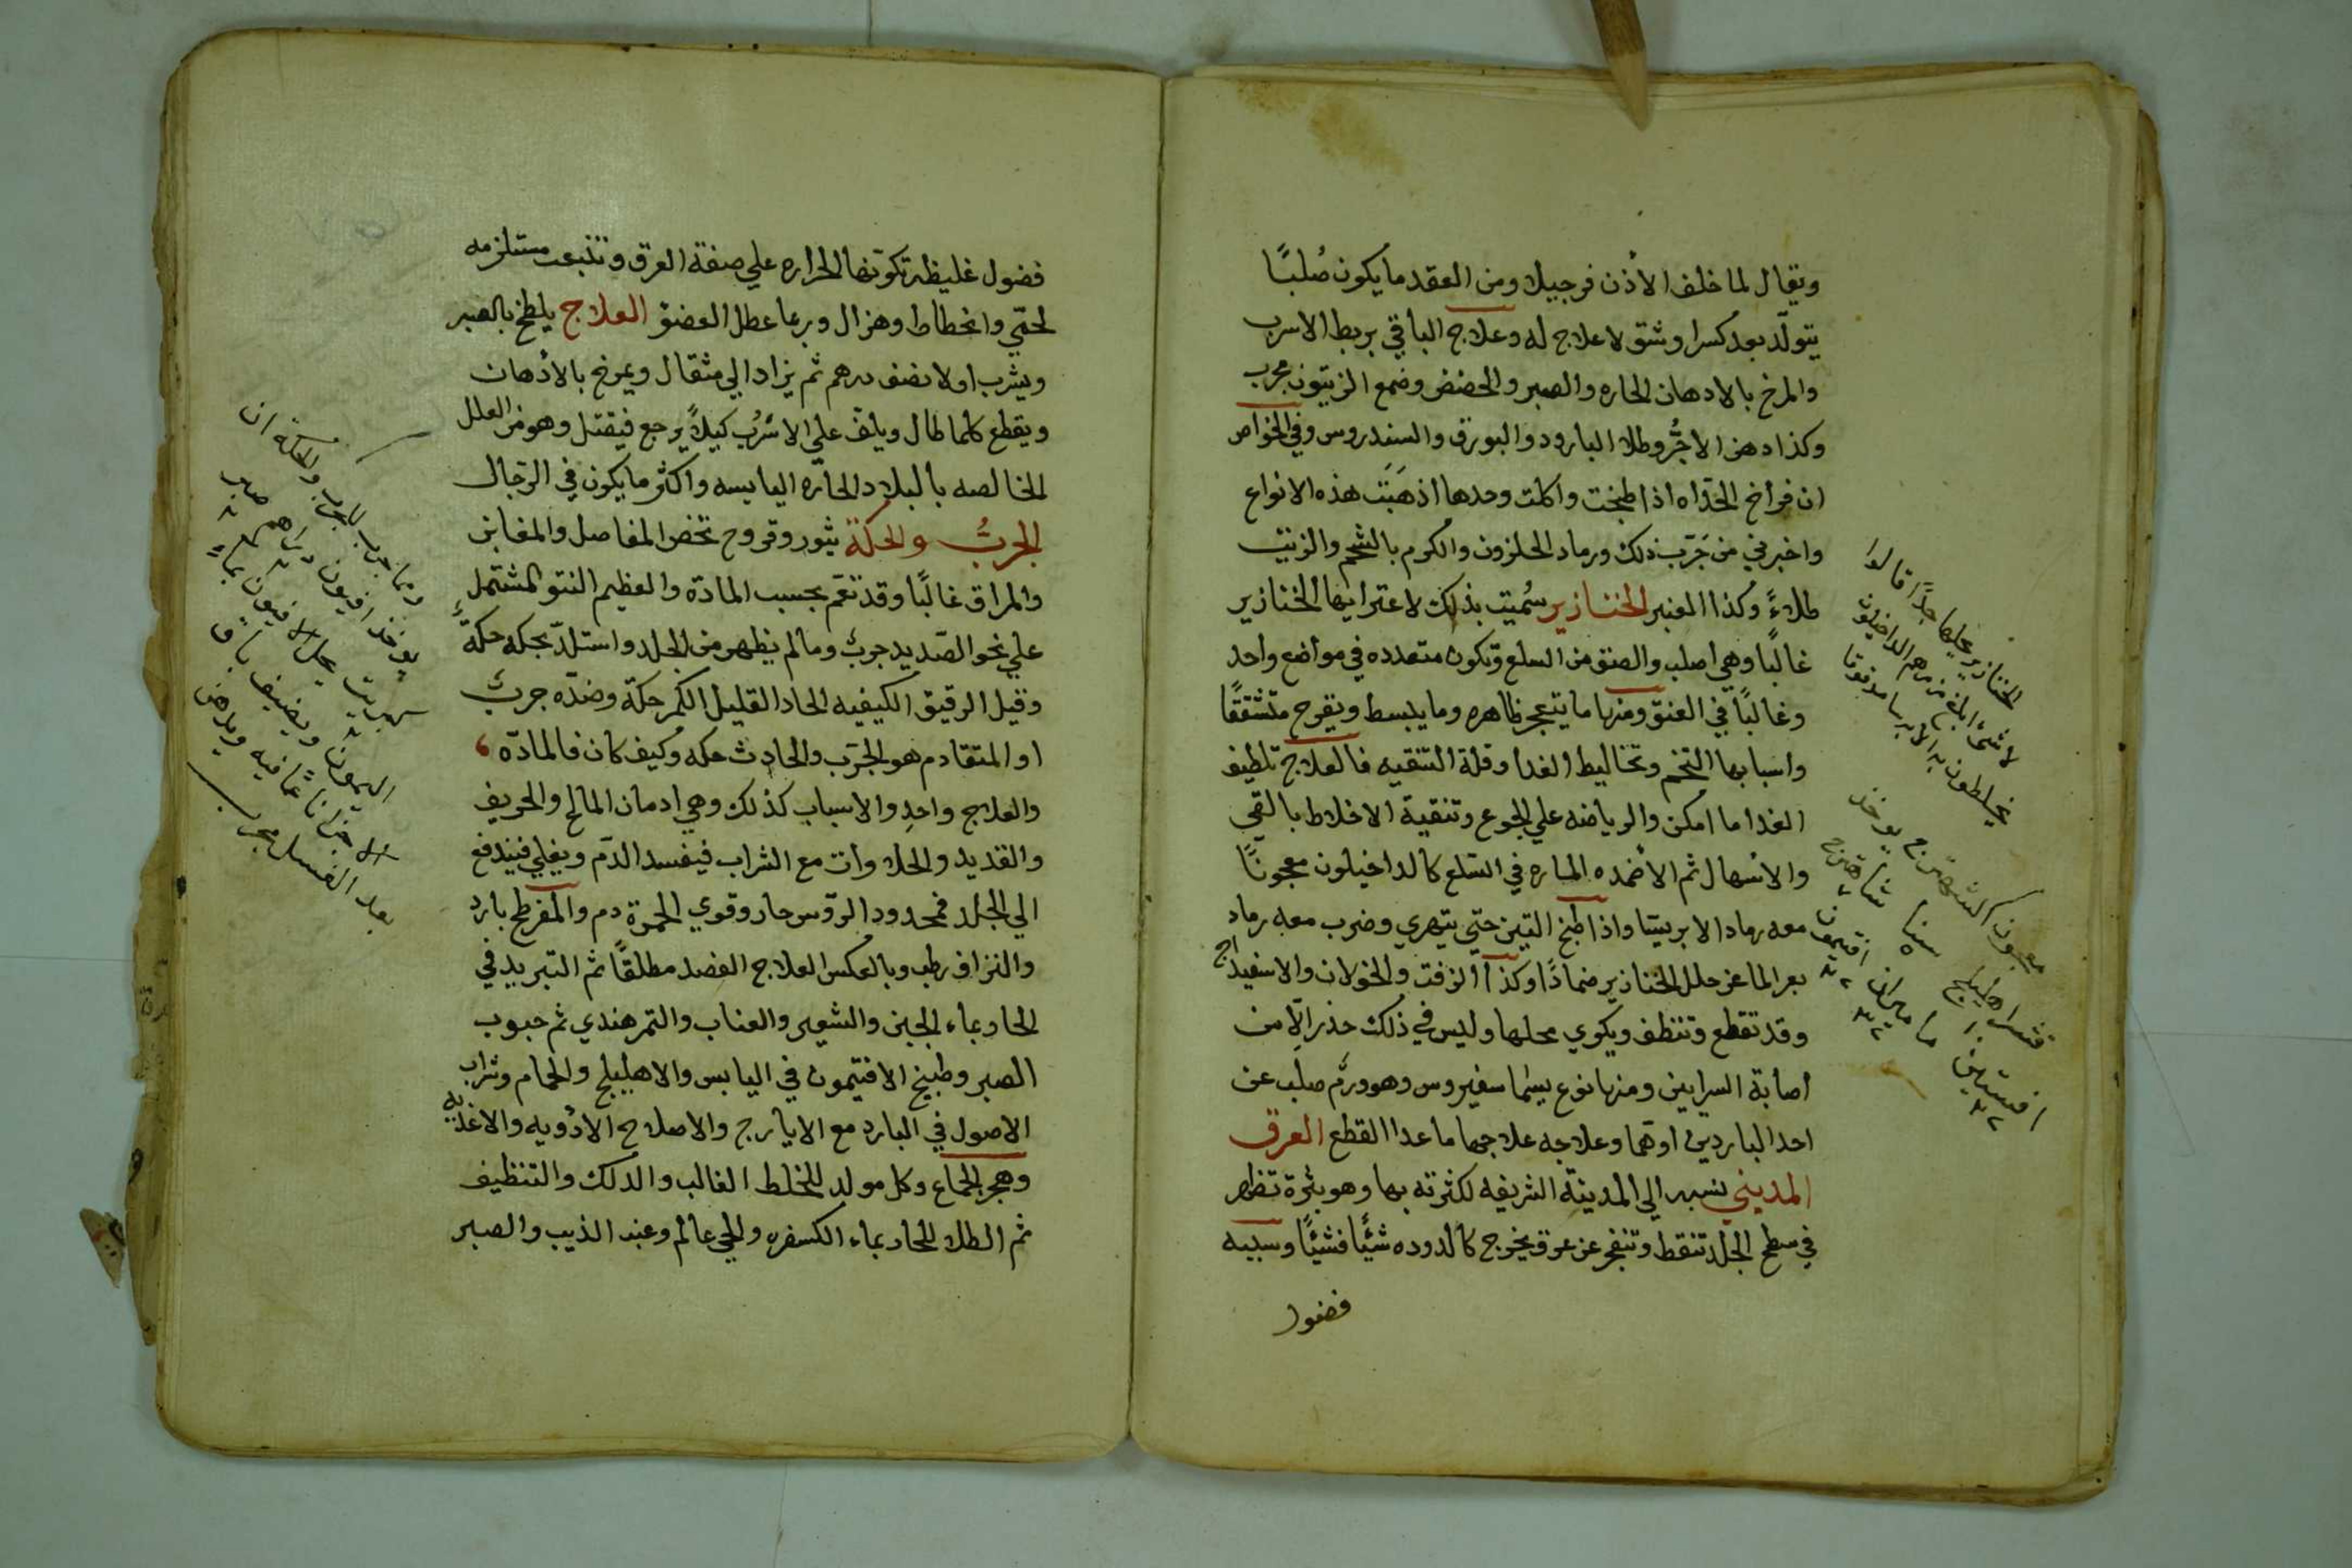 ويقال لما خلف الأذن فرجيلا ومن العقد ما يكون صُلبًا
يتولّد بعد كسر او شق لا علاج له وعلاج الباقي بربط الاسرب
والمرخ بالادهان الحاره والصبر والحضض وضمع الزيتون مجرب
وكذا دهن الاجُرّ وطلا البارود والبورق والسندروس وفي الخواص
ان فراخ الحدَاه اذا طبخت واكلت وحدها اذهَبَت هذه الانواع
واخبرني من جَرّب ذلك ورماد الحلزون والكرم بالشحم والزيت
طلاءً وكذا العنبر الخنازير سُميت بذلك لاعترايها الخنازير
غالبًا وهي اصلب والصق من السلع وتكون متعدده في مواضع واحد
وغالبًا في العنق ومنها ما يتعجر ظاهره وما يبسط ويقرح متشققًا
واسبابها التخم وتخاليط الغدا وقلة التنقيه فالعلاج تلطيف
الغدا ما امكن والرياضه علي الجوع وتنقية الاخلاط بالقي
والأسهال ثم الأضمده الماره في السّلع كالداخيلون معجونًا
معه رماد الابرسيا واذا طبخ التين حتي يتهري وضرب معه رماد
بعر الماعز حلل الخنازير ضمادًا وكذا الزفت والخولان والاسفيداج
وقد تقطع وتنظف ويكوي محلها وليس في ذلك حذر الّا من
أصابة السرايين ومنها نوع يسما سفيروس وهو ورم صلب عن
احد الباردين اوهما وعلاجه علاجها ما عدا القطع العرق
المديني نسبه الي المدينة الشريفه لكثرته بها وهو بثرة تظهر
في سطح الجلد تنقط وتنفجر عن عرق يخرج كالدوده شئًا فشئًا وسببه
فضول
الخنازير عليها جدًا قالوا
لا شيء ابلغ من مرهم الداخيلون
يخلطون به الايرسا مدقوقا
معجون الشهترج يوخذ
قشر اهليلج سنا شاهترج
افسنتين ماميران افتيمون
فضول غليظه تكوّنها الحراره علي صفة العرق وتنبعت مستلزمه
لحمّي وانحطاط وهزال وربما عطل العضو العلاج يلطخ بالصبر
ويشرب اولا نصف درهم ثم يزاد الي مثقال ويمرخ بالأدهان
ويقطع كلما طال ويلف علي الاسْرُب كيلًا يرجع فيقتل وهو من العلل
الخالصه بالبلاد الحارّه اليابسه واكثر ما يكون في الرّجال
الجربُ والحكة بثور وقروح تخص المفاصل والمغابن
والمراق غالبًا وقد تعم بحسب المادة والعظيم النتو المشتمل
علي نحو الصّديد جربٌ وما لم يظهر من الجلد واستلذّ بحكه حكةٌ
وقيل الرقيق الكيفيه الحاد القليل الكم حكة وضدّه جربٌ
او المتقادم هو الجَرَب والحادث حكه وكيف كان فالمادّه
والعلاج واحدٍ والاسباب كذلك وهي ادمان المالح والحريف
والقديد والحلاوات مع الشراب فيفسد الدّم ويغلي فيندفع
الي الجلد فمحدود الروّس حار وقوي الحمرة دم والمفرطح بارد
والنزاف رطب وبالعكس العلاج الفصد مطلقًا ثم التبريد في
الحار بماء الجبن والشعير والعناب والتمر هندي ثم حبوب
الصبر وطبيخ الافتيمون في اليابس والاهليلج والحمام وشراب
الاصول في البارد مع الايارج والاصلاح الأدويه والاغذيه
وهجر الجماع وكل مولد للخلط الغالب والدلك والتنظيف
ثم الطلا للحار بماء الكسفره والحي عالم وعنب الذيب والصبر
ومما جرب للجرب والحكة ان
يوخذ افيون درهم صبر
كبريت يحل الافيون بماءٍ
الليمون ويضيف باقي
الاجزا ناعمًا فيه ويدهن
بعد الغسل مجرب